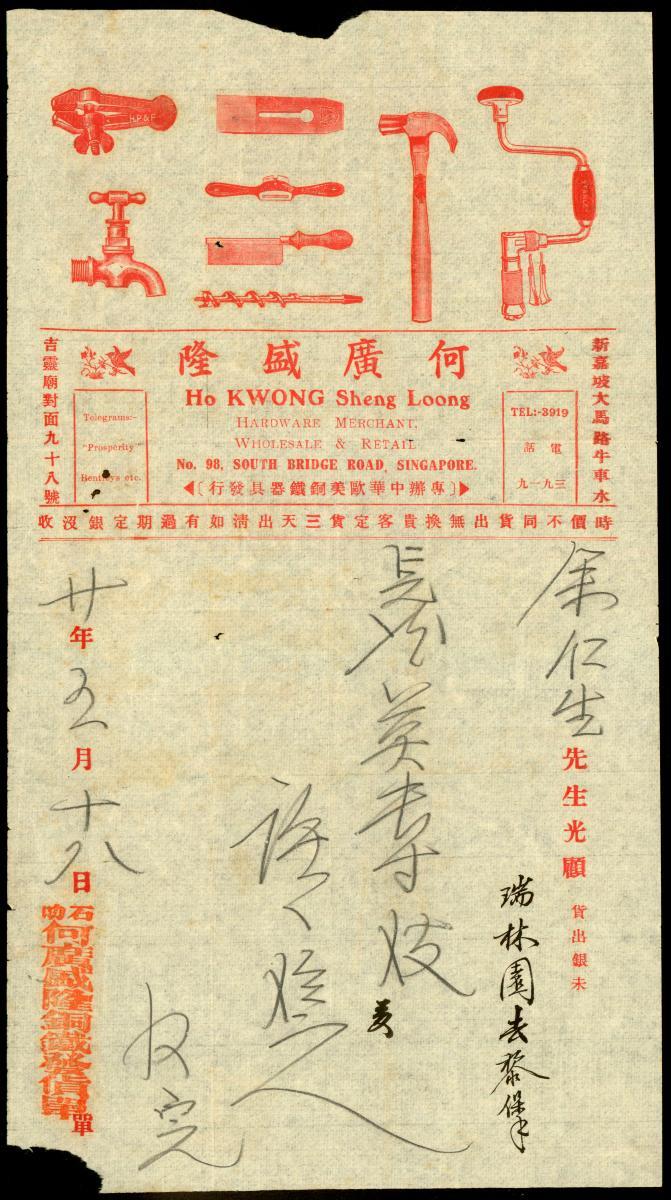 H.P.& F
何廣盛隆
Ho KWONG Sheng Loong
HARDWARE MERCHANT,
WHOLESALE & RETAIL
No. 98, SOUTH BRIDGE ROAD, SINGAPORE.
專辦中華歐美銅鐵器具發行
新嘉坡大馬路牛車水
吉靈廟對面九十八號
TEL:-3919
電話
三九一九
Telegrams:-
"Prosperity"
Bentleys etc.
時價不同貨出無換貴客定貨三天出清如有過期定銀沒收
余仁生先生光顧 貨出銀未
瑞林園去
收完
廿年五月十八日
石叻
何廣盛隆銅鐵發價單
單